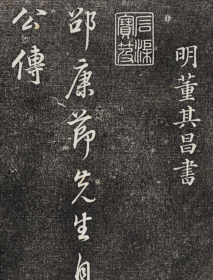 明董其昌書
邵康節先生自
公傳